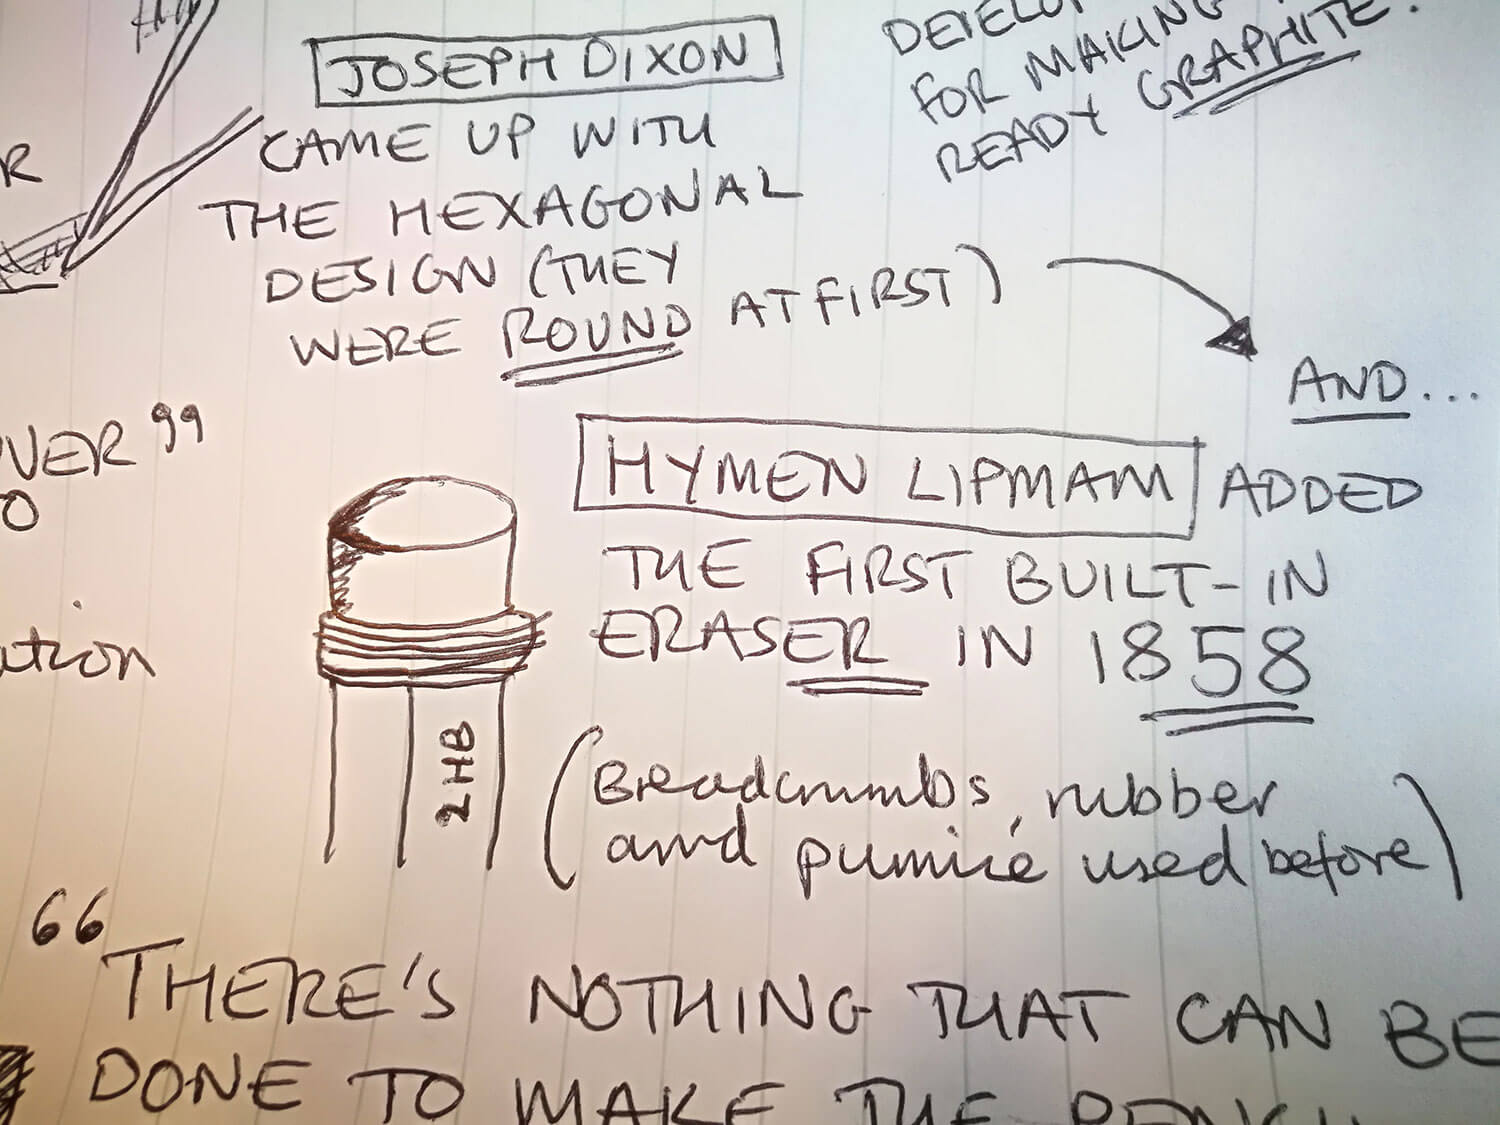 JOSEPH DIXON
CAME UP WITH
THE HEXAGONAL
DESIGN (THEY
WERE ROUND AT FIRST)
FOR MAKING
READY GRAPHITE.
AND...
HYMEN LIPMAM ADDED
THE FIRST BUILT-IN
ERASER IN 1858
(Breadcrumbs, rubber
and pumice used before)
2HB
"THERE'S NOTHING THAT CAN BE
DONE TO MAKE THE